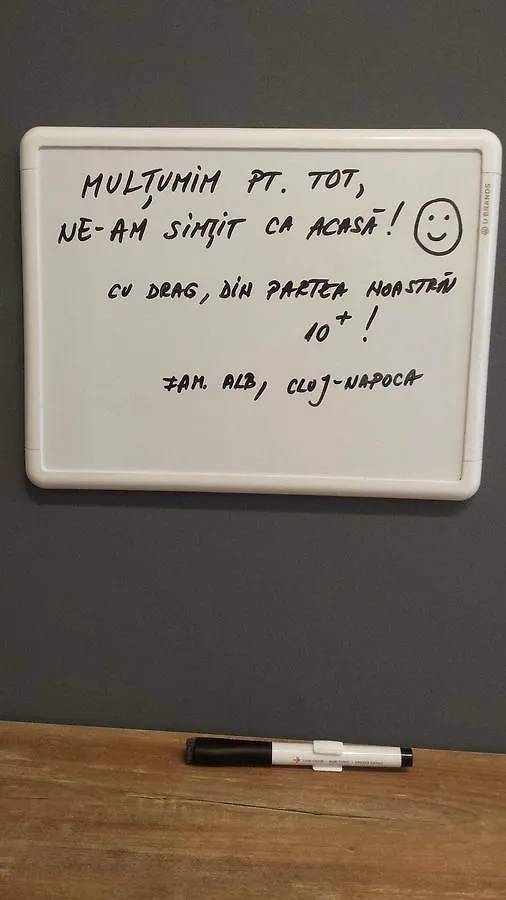 MULȚUMIM PT. TOT,
NE-AM SIMȚIT CA ACASĂ!
CU DRAG, DIN PARTEA NOASTRĂ
10+!
FAM. ALB, CLUJ-NAPOCA
U BRANDS